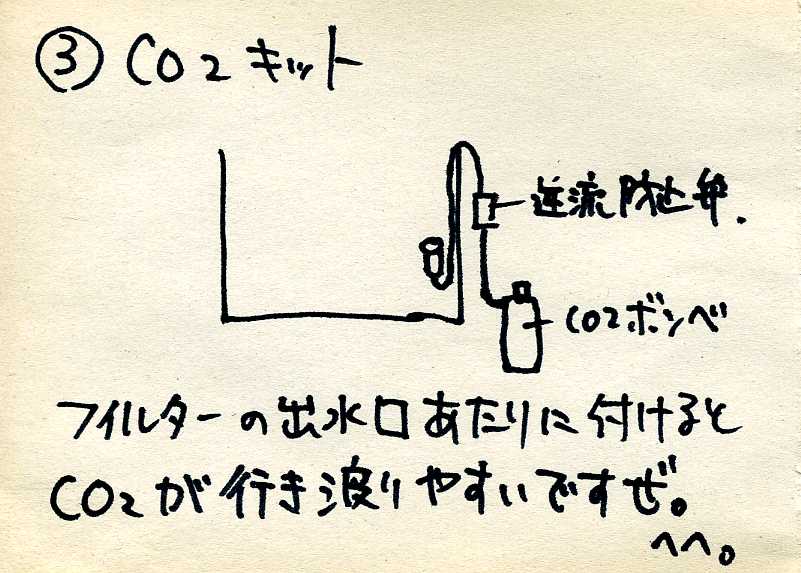 ③ CO2キット
逆流防止弁.
CO2ボンベ
フィルターの出水口あたりに付けると
CO2が行き渡りやすいですぜ。
へへ。